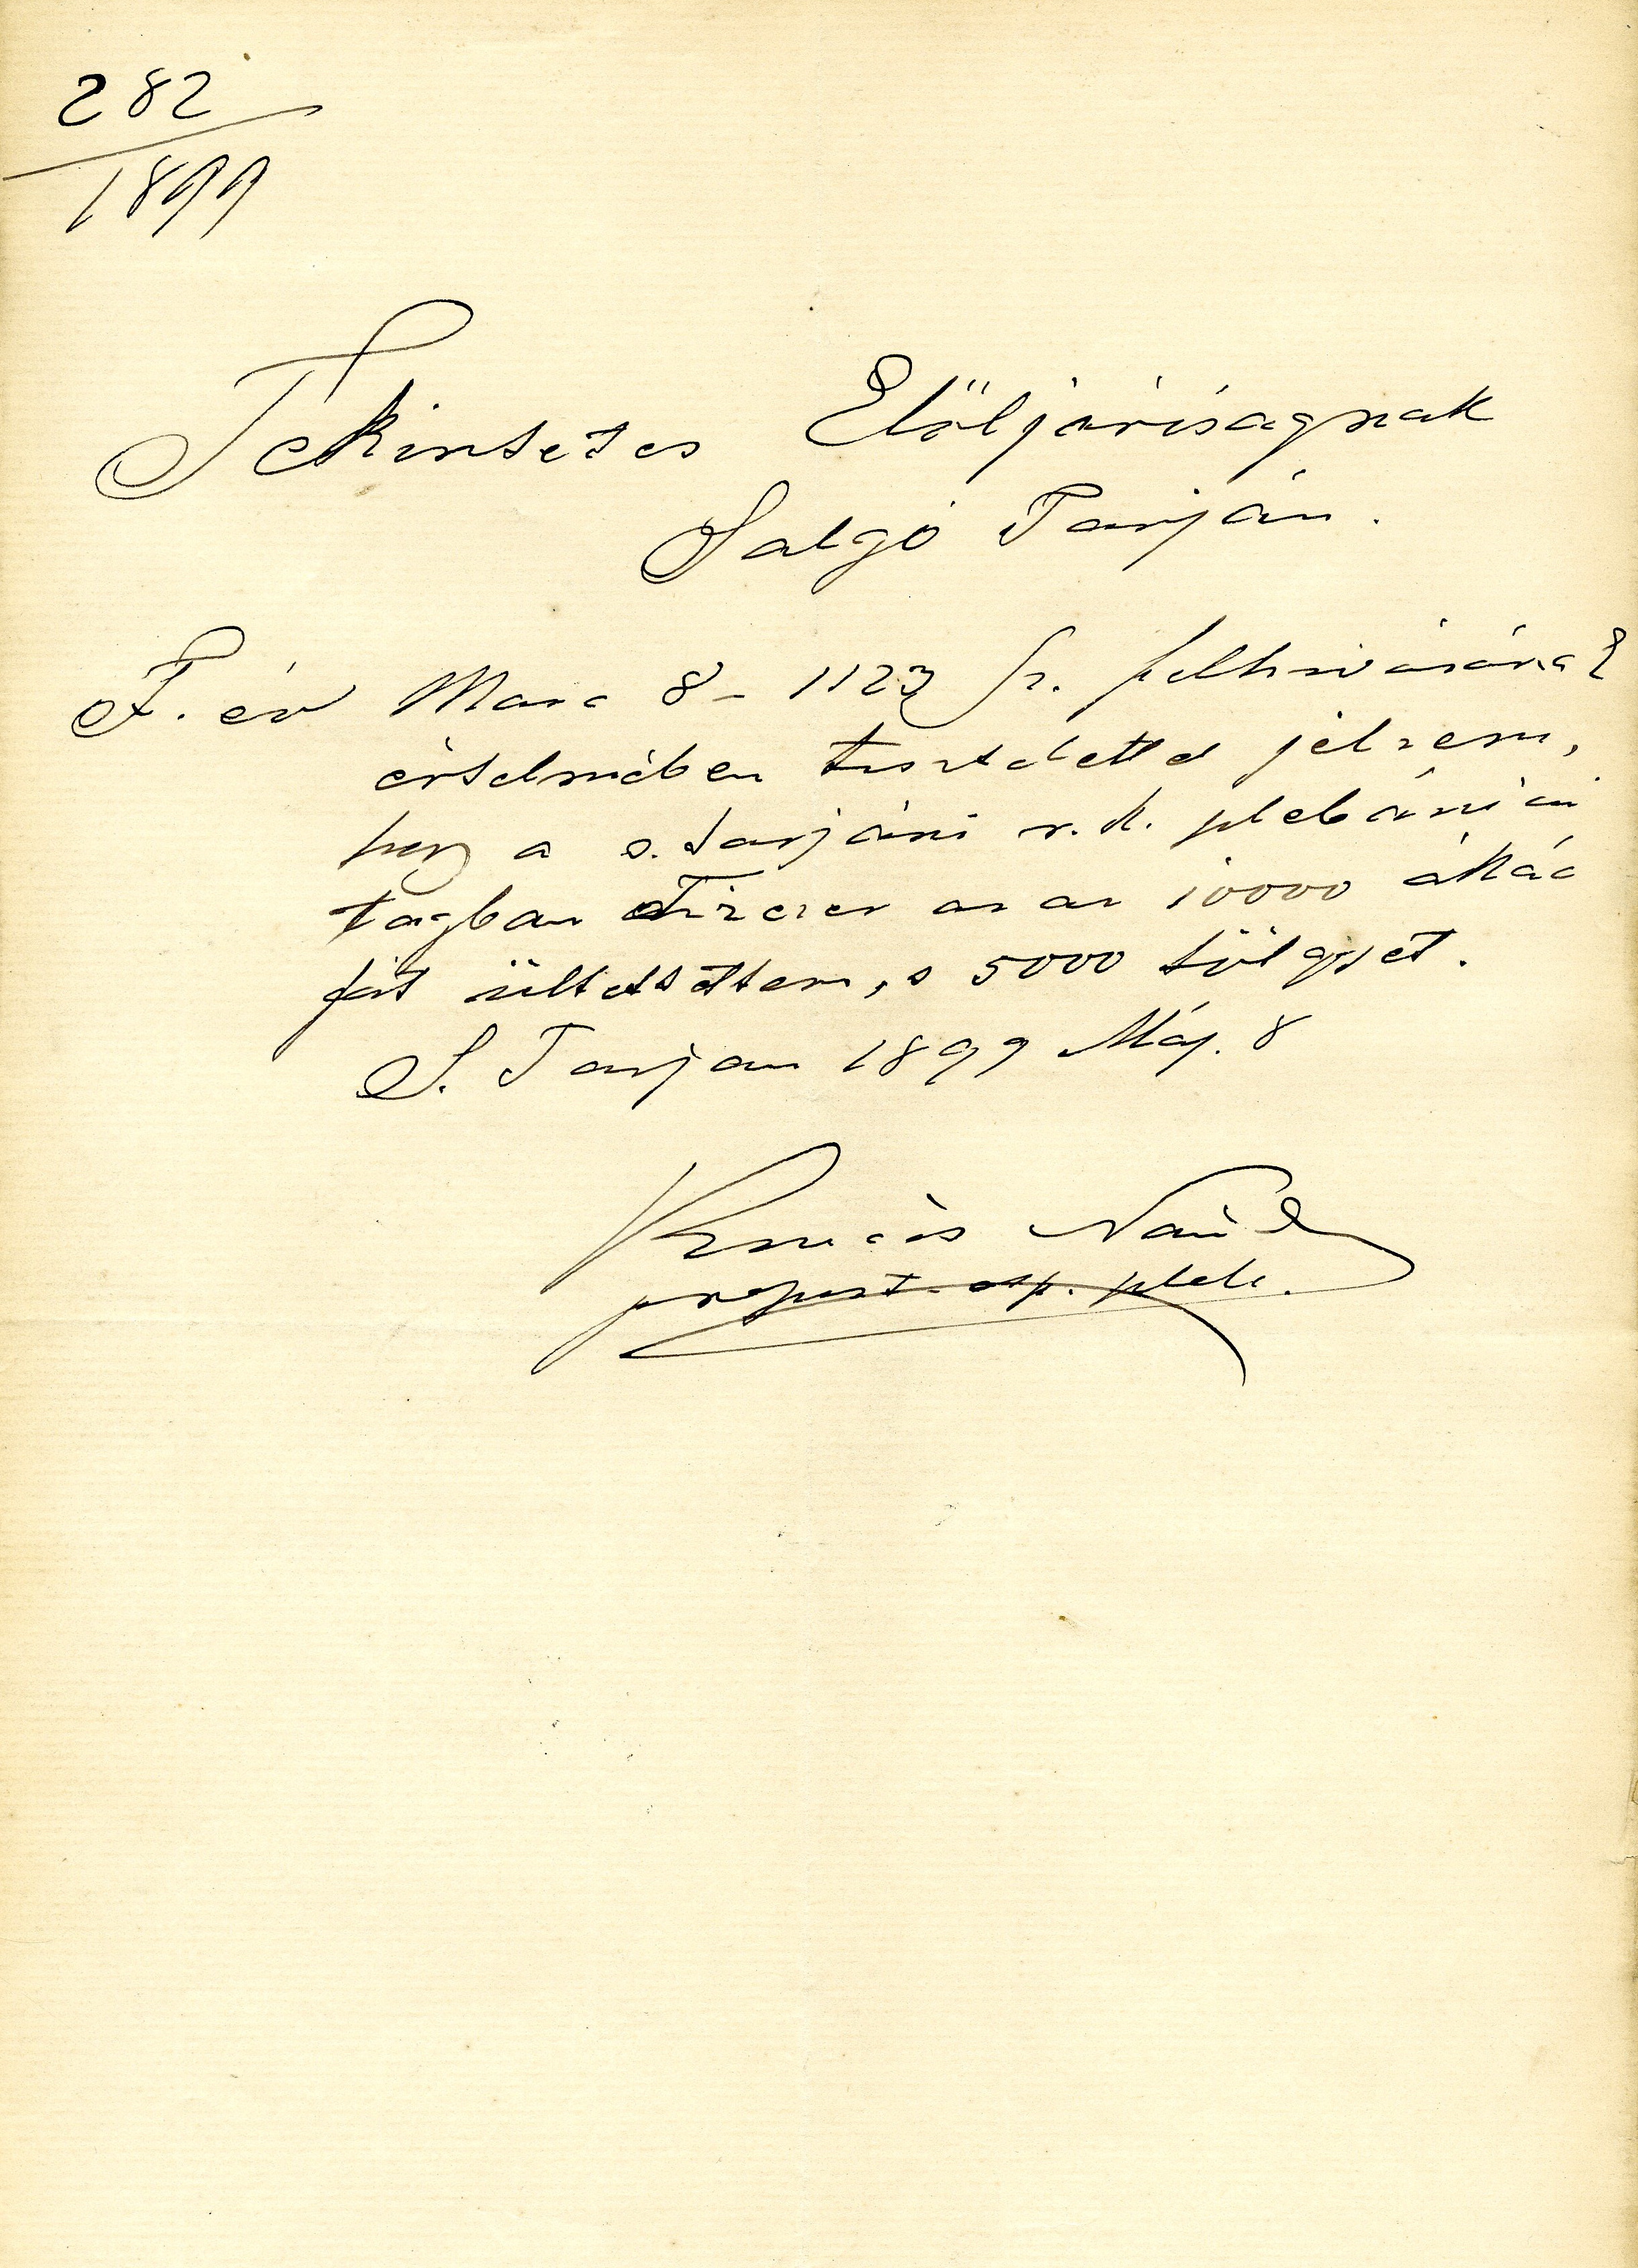 282
1899
Tekintetes Elöljáróságnak
Salgó Tarján.
F. év Marc 8- 1123 sz. felhivásának
értelmében tisztelettel jelzem,
hogy a s. tarjáni r. k. plebániai
tagban Tizezer azaz 10000 ákác
fát ültettettem, s 5000 tölgyet.
S. Tarjan 1899 Máj. 8
prépost esp. pleb.